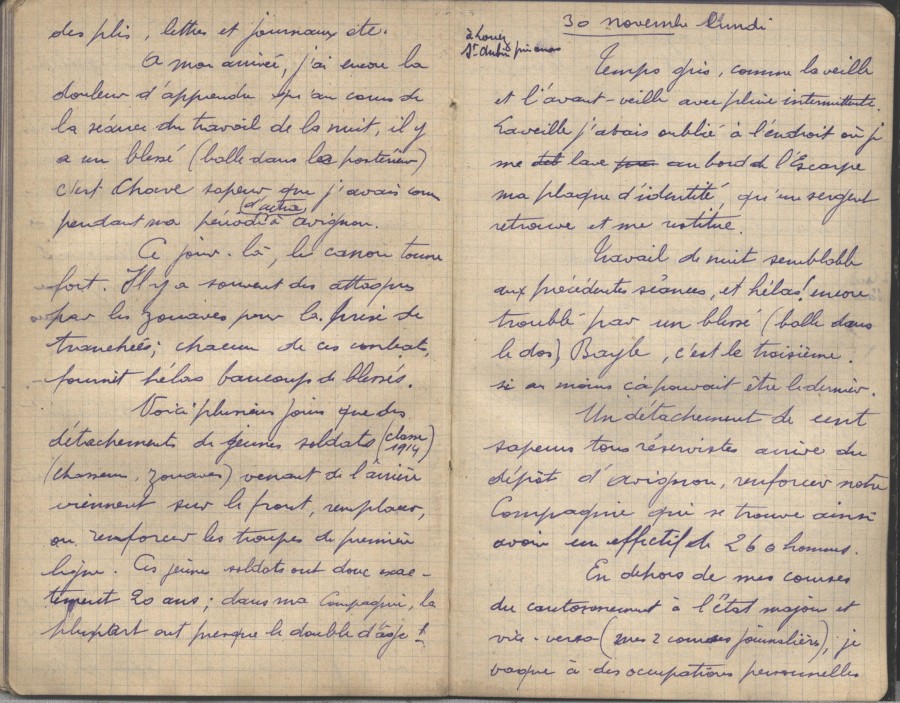 des plis, lettres et journaux etc.
A mon arrivée, j'ai encore la
douleur d'apprendre qu'au cours de
la séance du travail de la nuit, il y
a un blessé (balle dans le postérieur)
c'est Chave sapeur que j'avais connu
pendant ma période d'active à Avignon.
Ce jour-là, le canon tonne
fort. Il y a souvent des attaques
par les zouaves pour la prise de
tranchées; chacun de ces combats,
fournit hélas beaucoup de blessés.
Voici plusieurs jours que des
détachements de jeunes soldats (classe 1914)
(chasseurs, zouaves) venant de l'arrière
viennent sur le front, remplacer,
ou renforcer les troupes de première
ligne. Ces jeunes soldats ont donc exac-
tement 20 ans; dans ma Compagnie, la
plupart ont presque le double d'âge!
30 novembre Lundi
à Louez
St Aubin
Temps gris, comme la veille
et l'avant-veille avec pluie intermittente.
La veille j'avais oublié à l'endroit où je
me lave au bord de l'Escarpe
ma plaque d'identité, qu'un sergent
retrouve et me restitue.
Travail de nuit semblable
aux précédentes séances, et hélas! encore
troublé par un blessé (balle dans
le dos) Bayle, c'est le troisième.
si au moins ça pouvait être le dernier.
Un détachement de cent
sapeurs tous réservistes arrive du
dépôt d'Avignon, renforcer notre
Compagnie qui se trouve ainsi
avoir un effectif de 260 hommes.
En dehors de mes courses
du cantonnement à l'état major et
vice-versa (mes 2 courses journalières), je
vaque à des occupations personnelles